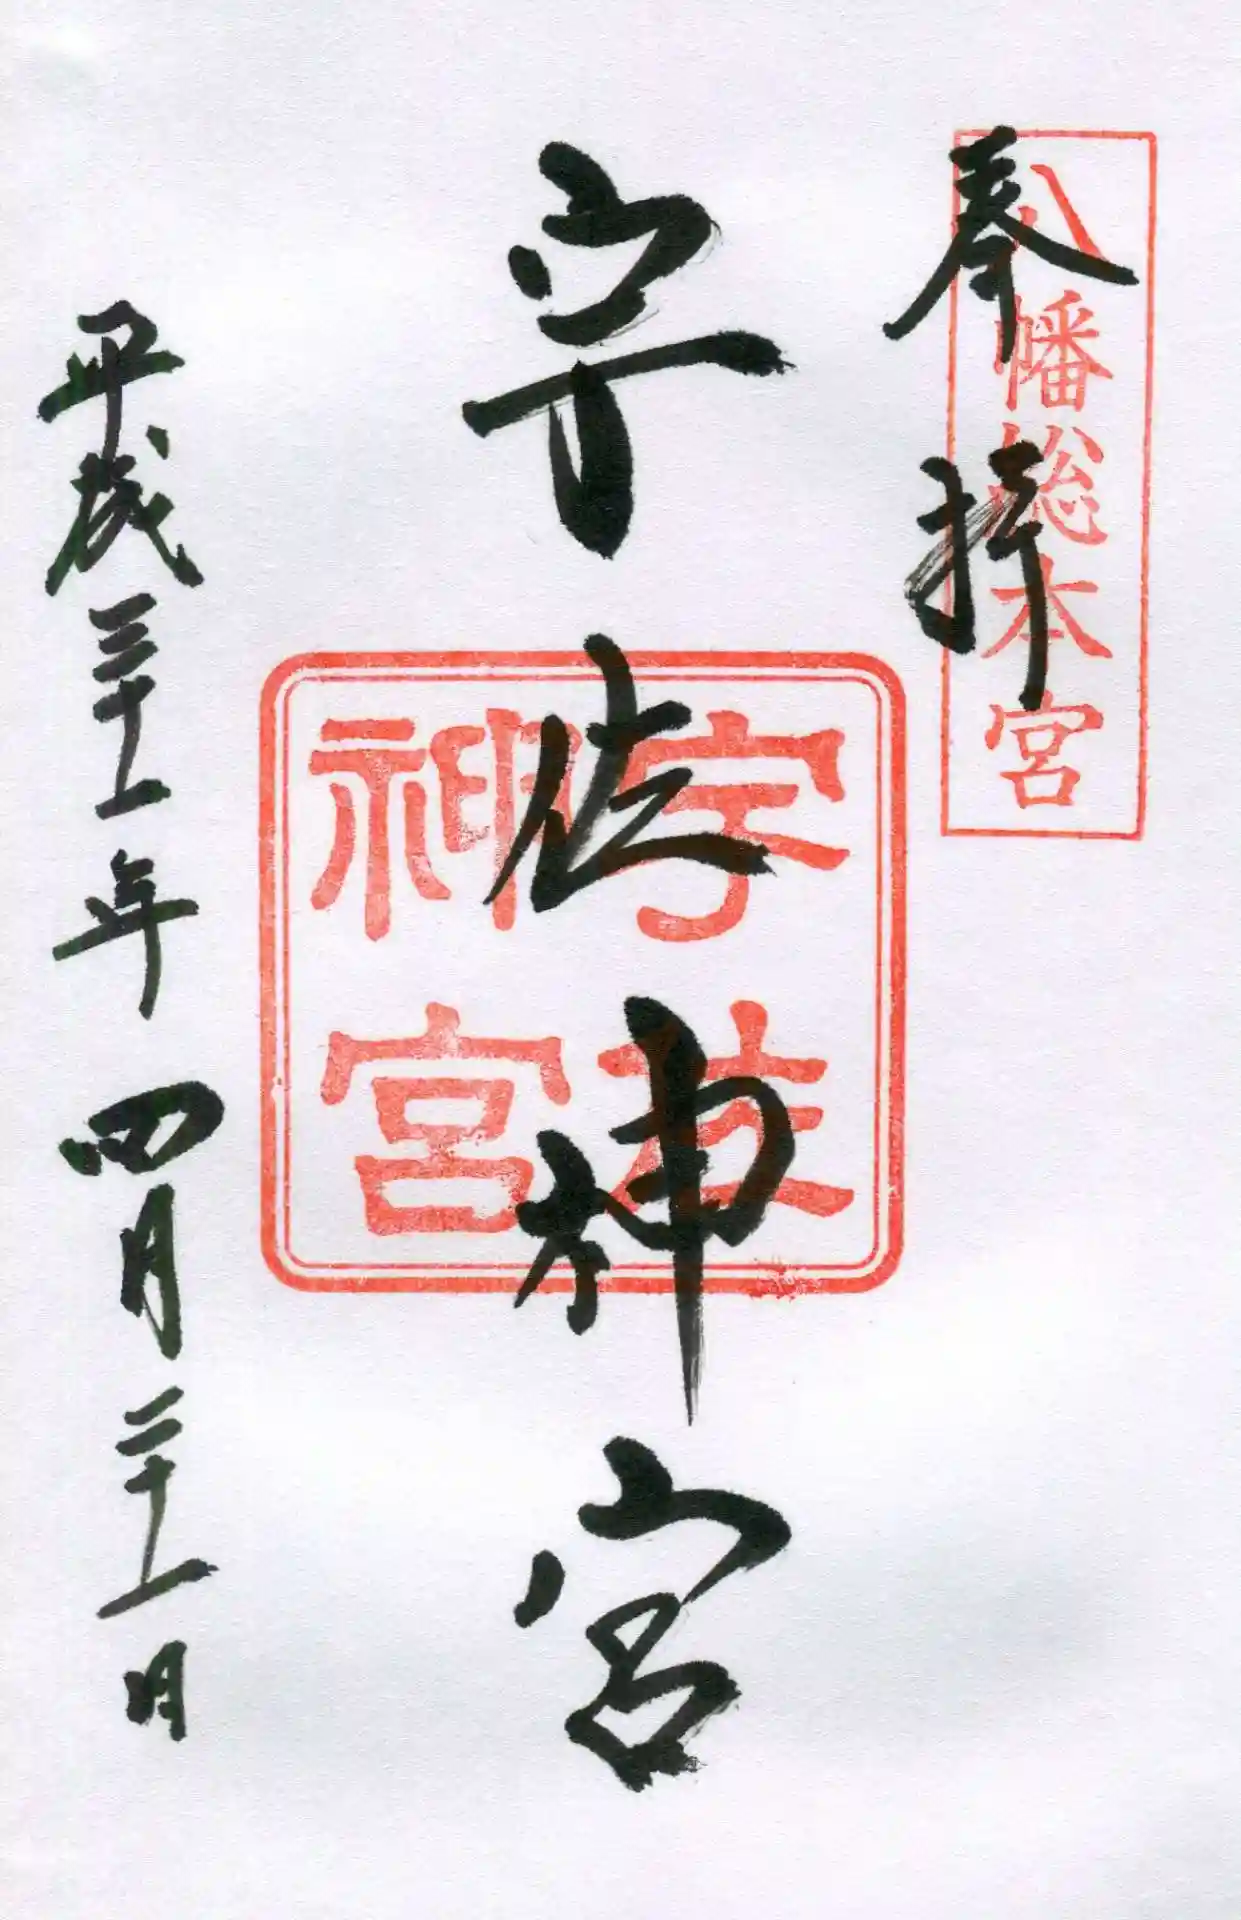 奉拝
八幡総本宮
宇佐神宮
宇佐
神宮
平成三十一年四月二十一日